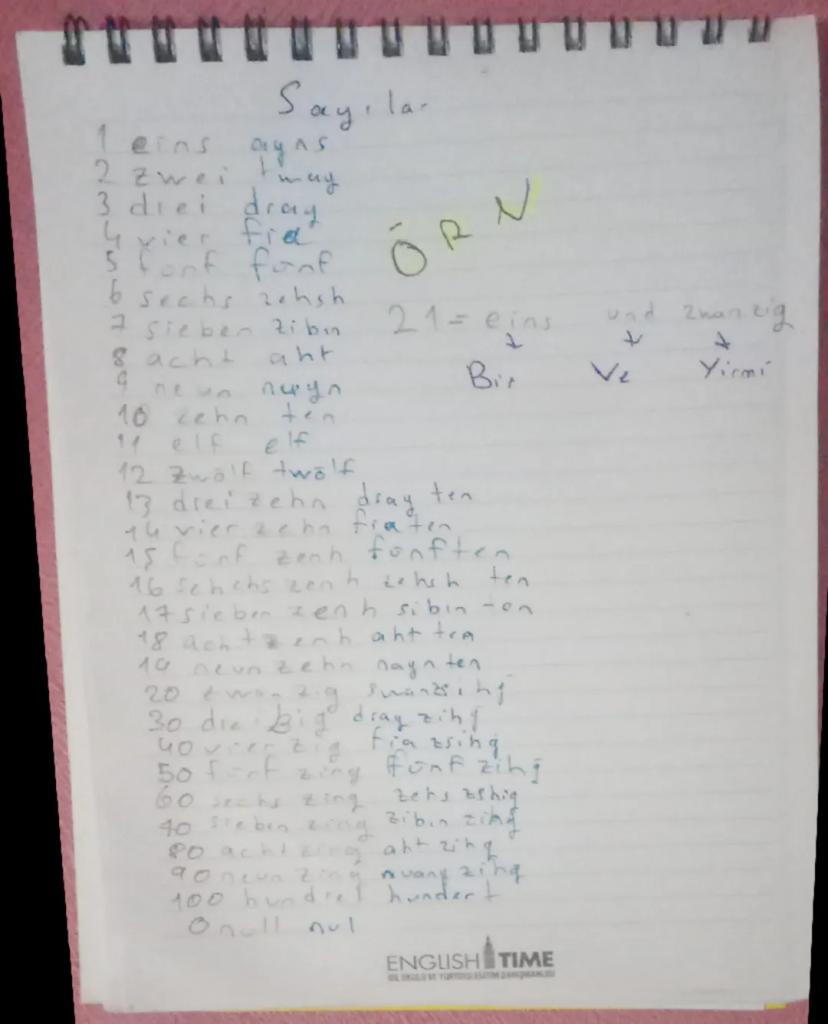 Sayıla
1 eins ayns
2 zwei tway
3 drei dray
4 vier fia
5 fünf fünf
6 sechs zehsh
7 sieben zibin
8 acht aht
9 neun nuyn
10 zehn ten
11 elf elf
12 zwölf twölf
13 drei zehn dray ten
14 vier zehn fia ten
15 fünf zenh fünften
16 sehchs zenh zehsh ten
17 sieben zenh sibin ten
18 acht zenh aht ten
19 neun zehn nayn ten
20 zwan zig swanzsihg
30 drei ßig dray zihg
40 vier zig fia zsihg
50 fünf zing fünf zihg
60 sechs zing zehs zshig
70 sieben zing zibin zihg
80 acht zing aht zihg
90 neun zing nuang zihg
100 hundret hundert
0 null nul
ÖRN
21 = eins und zwanzig
Bir Ve Yirmi
ENGLISH TIME
DİL OKULU VE YURTDIŞI EĞİTİM DANIŞMANLIĞI